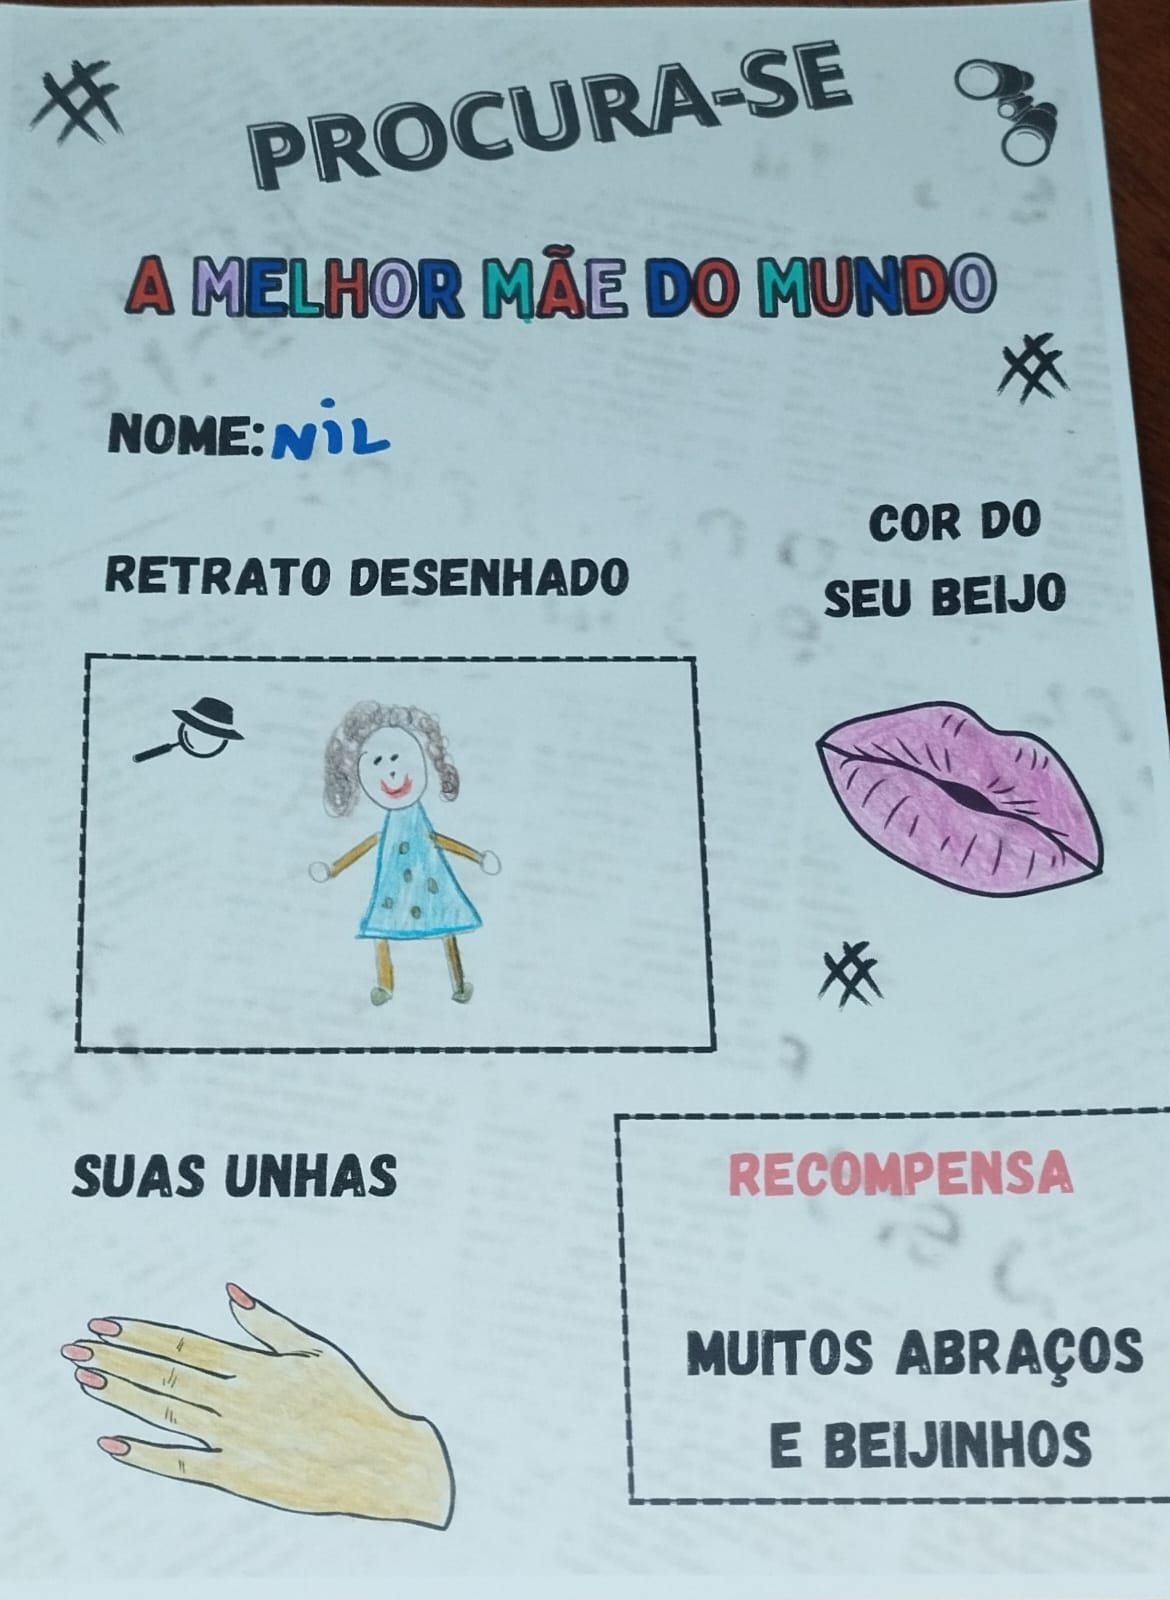 PROCURA-SE
A MELHOR MÃE DO MUNDO
NOME: NiL
COR DO
SEU BEIJO
RETRATO DESENHADO
SUAS UNHAS
RECOMPENSA
MUITOS ABRAÇOS
E BEIJINHOS